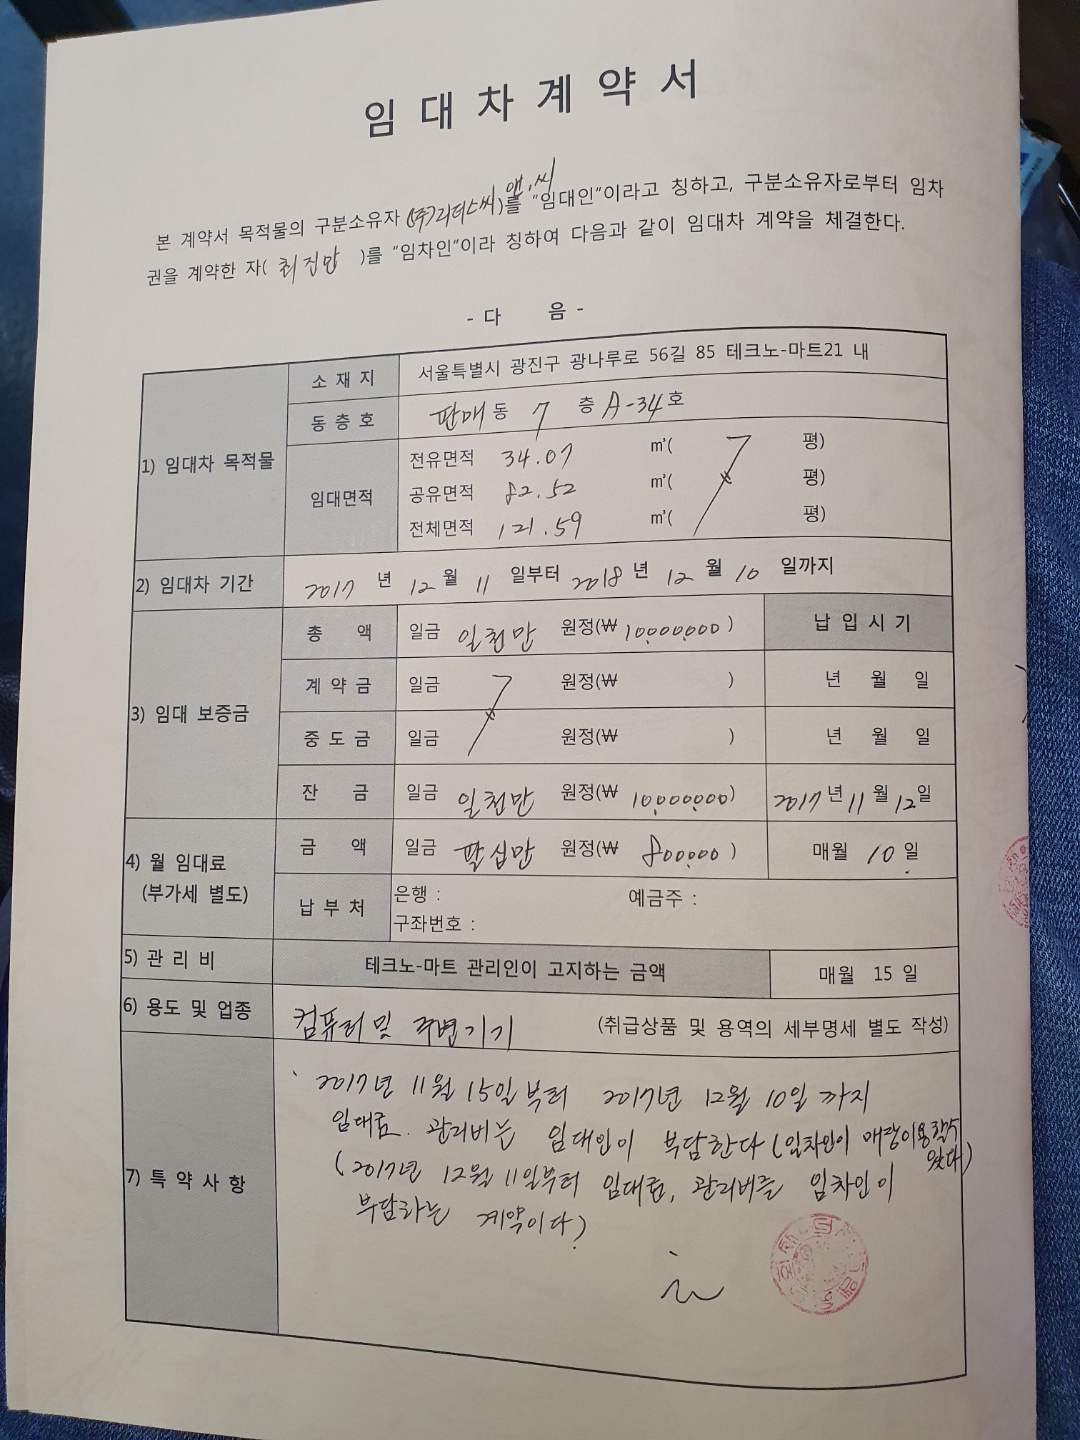 임대차계약서
본 계약서 목적물의 구분소유자 ((주)리더스씨앤.씨)를 "임대인"이라고 칭하고, 구분소유자로부터 임차
권을 계약한 자( 최진만 )를 "임차인"이라 칭하여 다음과 같이 임대차 계약을 체결한다.
- 다 음 -
1) 임대차 목적물
소 재 지 서울특별시 광진구 광나루로 56길 85 테크노-마트21 내
동 층 호 판매 동 7 층 A-34 호
임대면적
전유면적 34.07 ㎡( 평)
공유면적 82.52 ㎡( 평)
전체면적 121.59 ㎡( 평)
2) 임대차 기간 2017 년 12 월 11 일부터 2018 년 12 월 10 일까지
3) 임대 보증금
총 액 일금 일천만 원정(₩ 10,000,000 ) 납 입 시 기
계 약 금 일금 원정(₩ ) 년 월 일
중 도 금 일금 원정(₩ ) 년 월 일
잔 금 일금 일천만 원정(₩ 10,000,000 ) 2017 년 11 월 12 일
4) 월 임대료
(부가세 별도)
금 액 일금 팔십만 원정(₩ 800,000 ) 매월 10 일
납 부 처 은행 : 예금주 :
구좌번호 :
5) 관 리 비 테크노-마트 관리인이 고지하는 금액 매월 15 일
6) 용도 및 업종 컴퓨터 및 주변기기 (취급상품 및 용역의 세부명세 별도 작성)
7) 특 약 사 항
2017년 11월 15일부터 2017년 12월 10일까지
임대료. 관리비는 임대인이 부담한다 (임차인이 매장이용할수
있다)
(2017년 12월 11일부터 임대료, 관리비를 임차인이
부담하는 계약이다)